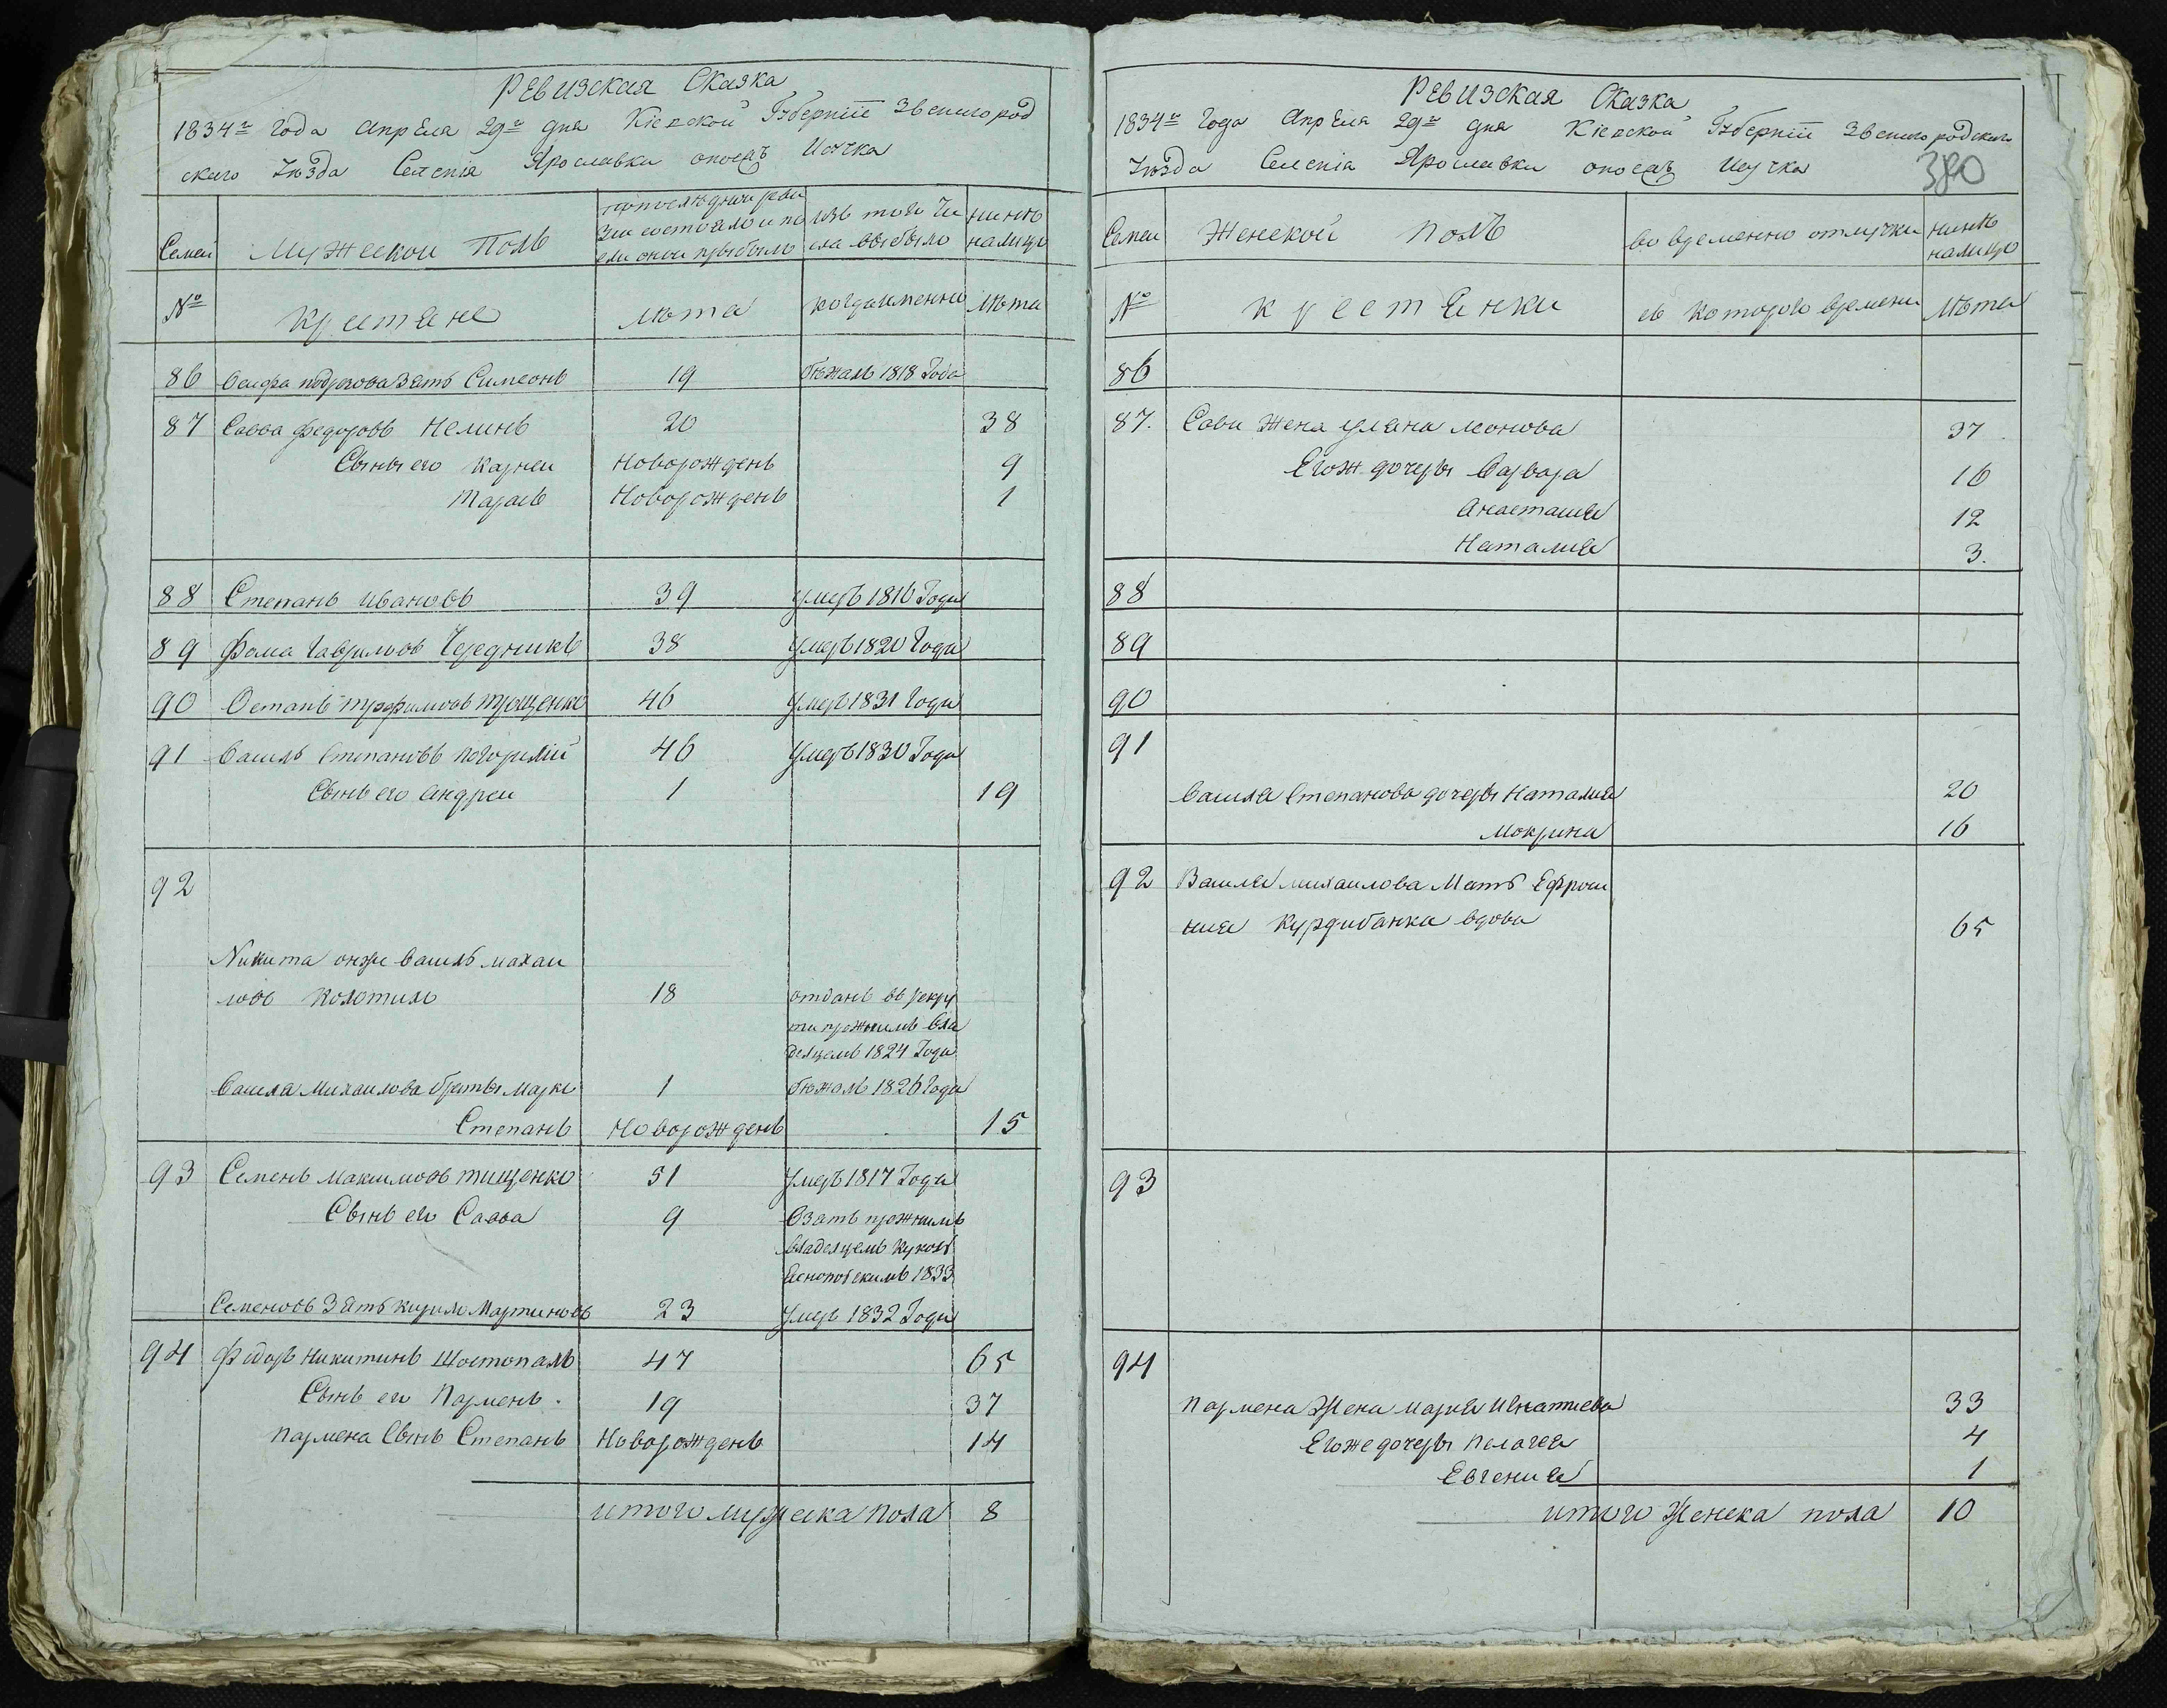 Ревизская Сказка
1834го Года Апреля 29го дня Кіевской Губерніи Звенигород
скаго Уѣзда Селенія Ярославки
Семьи
Мужескои Полъ
по последнеи реви
зіи состояло и по
сли онои прибыло
изъ того чи
сла выбыло
нинѣ
налицо
№
Крестяне
лѣта
когда именно
лѣта
86 Зять Симеонъ 19 бѣжалъ 1818 Года
87 Савва Федоровъ Нелинъ 20 38
Сыны его Карнеи Новорожденъ 9
Тарасъ Новорожденъ 1
88 Степанъ Ивановъ 39 умеръ 1816 Года
89 Фома Гавриловъ Чередникъ 38 умеръ 1820 Года
90 Остапъ Трофимовъ Трощенко 46 умеръ 1831 Года
91 Василь Степановъ Погорилій 46 умеръ 1830 Года
Сынъ его Андреи 1 19
92
Никита онже Василь Михаи
ловъ Колотило 18 отданъ въ рекру
ти прежнимъ вла
делцемъ 1824 Года
Василя Михаилова братья Марко 1 бѣжалъ 1826 Года
Степанъ Новорожденъ 15
93 Семенъ Максимовъ Тищенко 51 умеръ 1817 Года
Сынъ его Савва 9 Взятъ прежнимъ
владелцемъ
1833
Семеновъ Зять Кирило Мартиновъ 23 умеръ 1832 Года
94 Федоръ Никитинъ Шостопалъ 47 65
Сынъ его Парменъ 19 37
Пармена Сынъ Степанъ Новорожденъ 14
итого мужеска пола 8
Ревизская Сказка
380
1834го Года Апреля 29го дня Кіевской Губерніи Звенигородскаго
Уѣзда Селенія Ярославки
Семьи
Женской полъ
во временно отлучки
нинѣ
налицо
№
крестянки
съ которого времени
лѣта
86
87. Савы Жена Уляна Леонова 37
Егож дочеры Варвара 16
Анастасия 12
Наталия 3.
88
89
90
91
Василя Степанова дочеры Наталия 20
Мокрина 16
92 Василя Михаилова Мать Ефроси
ния Курдибанка вдова 65
93
94
Пармена Жена Мария Игнатиева 33
Егоже дочеры Пелагея 4
Евгения 1
итого Женска пола 10